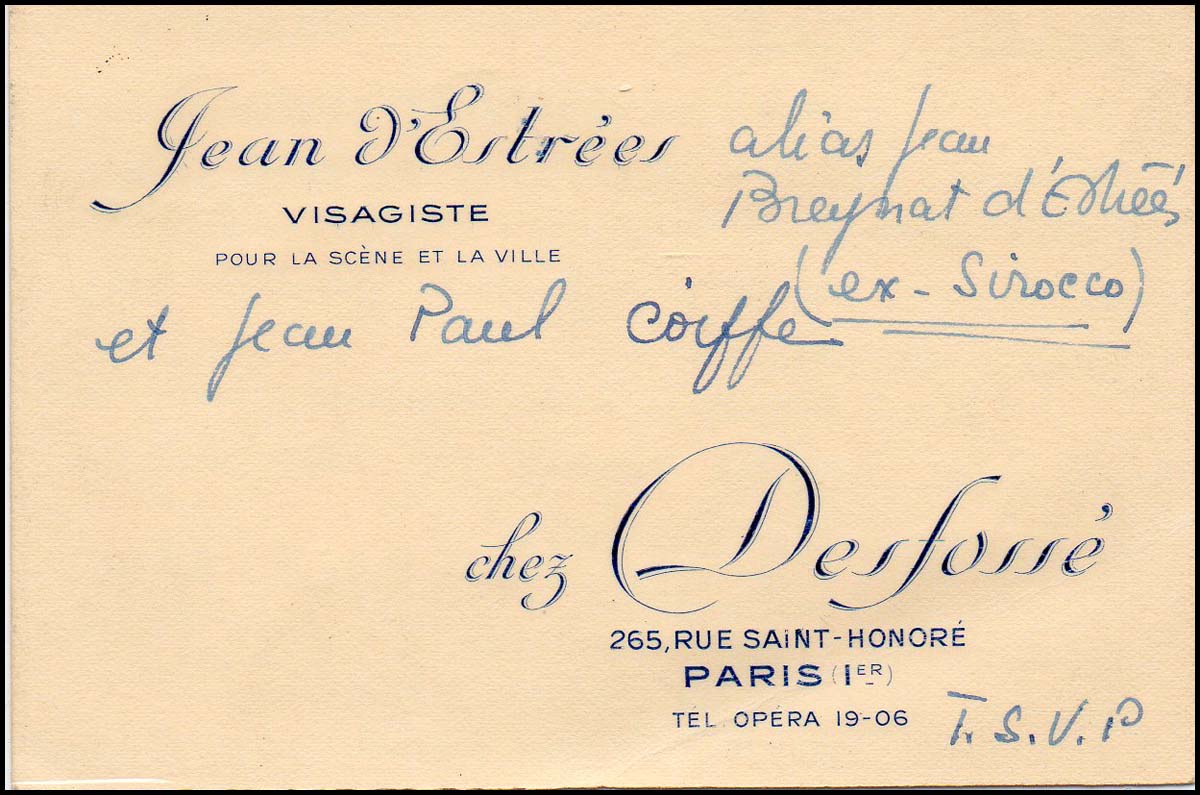 Jean d'Estrées
alias Jean
Breynat d'Estrées
(ex-Sirocco)
VISAGISTE
POUR LA SCÈNE ET LA VILLE
et Jean Paul Coiffe
chez Desfossé
265, RUE SAINT-HONORÉ
PARIS (1ER)
TÉL. OPÉRA 19-06
T.S.V.P